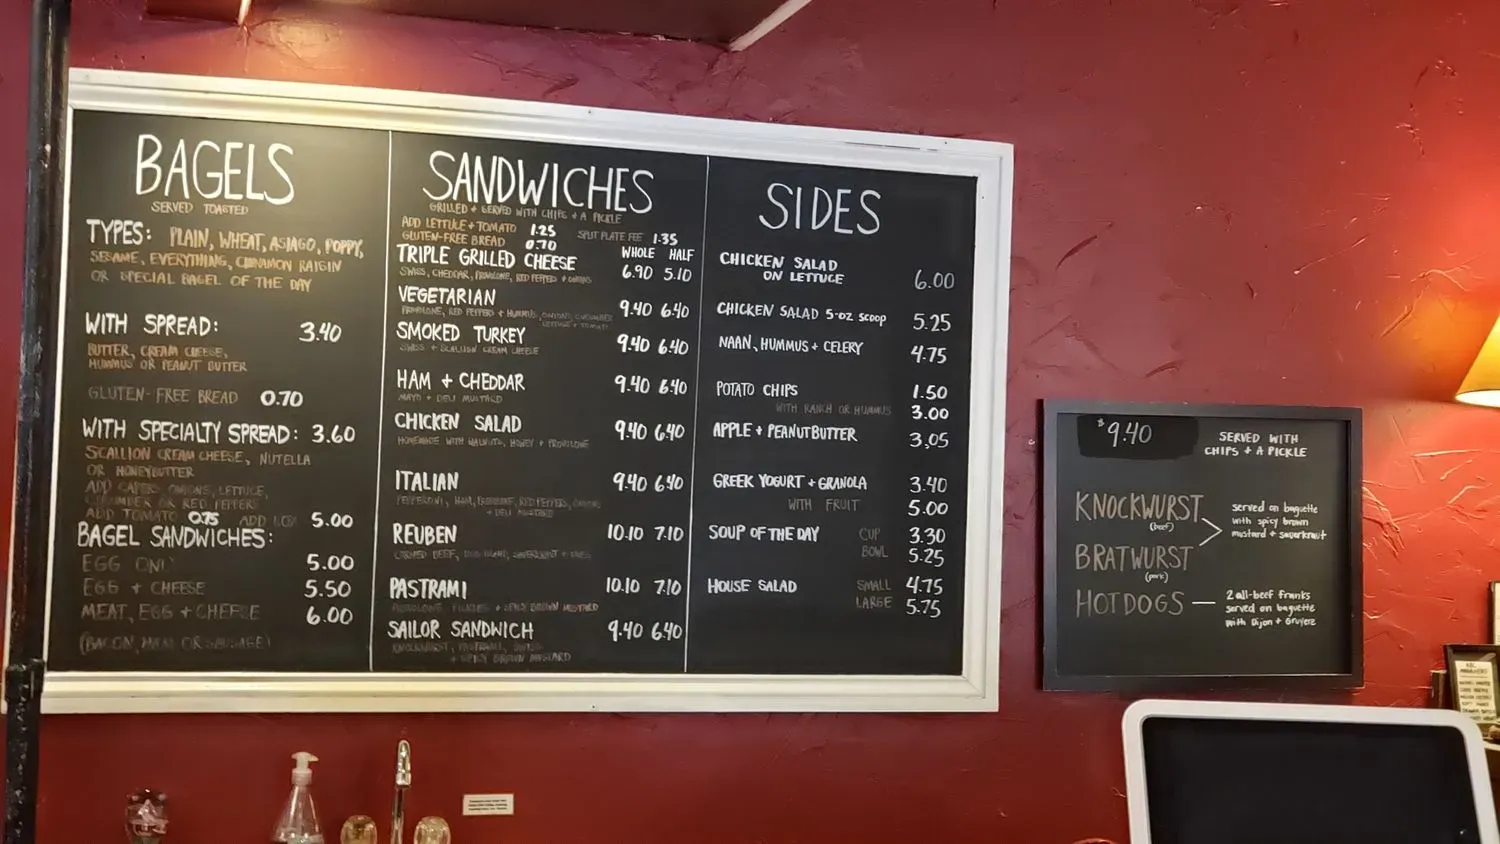 BAGELS
SERVED TOASTED
TYPES: PLAIN, WHEAT, ASIAGO, POPPY,
SESAME, EVERYTHING, CINNAMON RAISIN
OR SPECIAL BAGEL OF THE DAY
WITH SPREAD: 3.40
BUTTER, CREAM CHEESE,
HUMMUS OR PEANUT BUTTER
GLUTEN-FREE BREAD 0.70
WITH SPECIALTY SPREAD: 3.60
SCALLION CREAM CHEESE, NUTELLA
OR HONEYBUTTER
ADD CAPERS, ONIONS, LETTUCE,
CUCUMBER OR RED PEPPERS
ADD TOMATO 0.75 ADD LOX 5.00
BAGEL SANDWICHES:
EGG ONLY 5.00
EGG + CHEESE 5.50
MEAT, EGG + CHEESE 6.00
(BACON, HAM OR SAUSAGE)
SANDWICHES
GRILLED + SERVED WITH CHIPS + A PICKLE
ADD LETTUCE + TOMATO 1.25 SPLIT PLATE FEE 1.35
GLUTEN-FREE BREAD 0.70
WHOLE HALF
TRIPLE GRILLED CHEESE 6.90 5.10
SWISS, CHEDDAR, PROVOLONE, RED PEPPERS + ONIONS
VEGETARIAN 9.40 6.40
PROVOLONE, RED PEPPERS + HUMMUS, ONIONS, CUCUMBER
LETTUCE + TOMATO
SMOKED TURKEY 9.40 6.40
SWISS + SCALLION CREAM CHEESE
HAM + CHEDDAR 9.40 6.40
MAYO + DELI MUSTARD
CHICKEN SALAD 9.40 6.40
HOMEMADE WITH WALNUTS, HONEY + PROVOLONE
ITALIAN 9.40 6.40
PEPPERONI, HAM, PROVOLONE, RED PEPPERS, ONIONS
+ DELI MUSTARD
REUBEN 10.10 7.10
CORNED BEEF, SAUERKRAUT + SWISS
PASTRAMI 10.10 7.10
PROVOLONE, PICKLES + SPICY BROWN MUSTARD
SAILOR SANDWICH 9.40 6.40
KNOCKWURST, PASTRAMI, SWISS
+ SPICY BROWN MUSTARD
SIDES
CHICKEN SALAD
ON LETTUCE 6.00
CHICKEN SALAD 5-OZ SCOOP 5.25
NAAN, HUMMUS + CELERY 4.75
POTATO CHIPS 1.50
WITH RANCH OR HUMMUS 3.00
APPLE + PEANUTBUTTER 3.05
GREEK YOGURT + GRANOLA 3.40
WITH FRUIT 5.00
SOUP OF THE DAY CUP 3.30
BOWL 5.25
HOUSE SALAD SMALL 4.75
LARGE 5.75
$9.40 SERVED WITH
CHIPS + A PICKLE
KNOCKWURST
(beef)
BRATWURST
(pork)
served on baguette
with spicy brown
mustard + sauerkraut
HOTDOGS — 2 all-beef franks
served on baguette
with Dijon + Gruyere